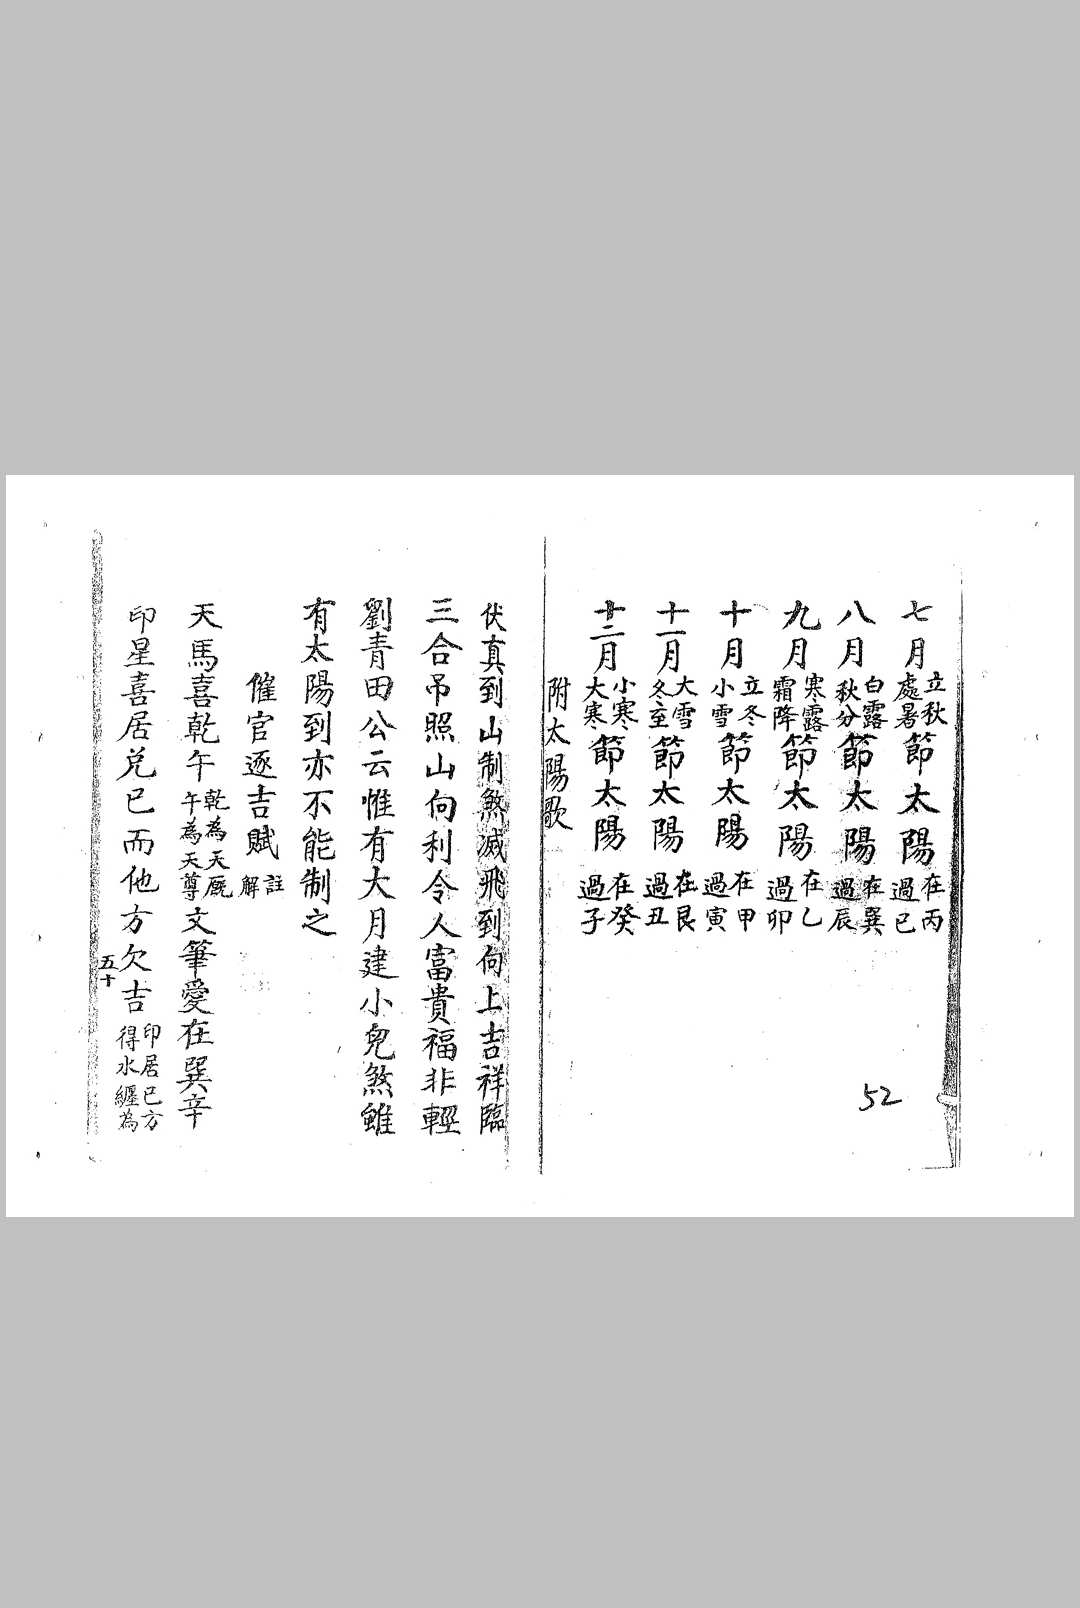 七月立秋處暑節太陽在丙過巳
八月白露秋分節太陽在巽過辰
九月寒露霜降節太陽在乙過卯
十月立冬小雪節太陽在甲過寅
十一月大雪冬至節太陽在艮過丑
十二月小寒大寒節太陽在癸過子
附太陽歌
伏真到山制煞滅飛到向上吉祥臨
三合吊照山向利令人富貴福非輕
劉青田公云惟有大月建小兒煞雖
有太陽到亦不能制之
催官逐吉賦註解
天馬喜乾午乾為天厩午為天尊文筆愛在巽辛
印星喜居兌巳而他方欠吉印居巳方得水纏為
五十
52